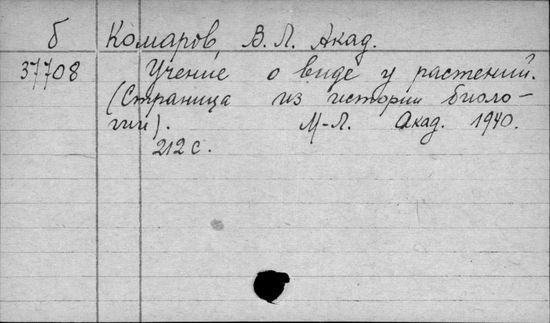 б Комаров, В. Л. Акад.
37708 Учение о виде у растений.
(Страница из истории биоло-
гии). М-Л. Акад. 1940.
212 с.